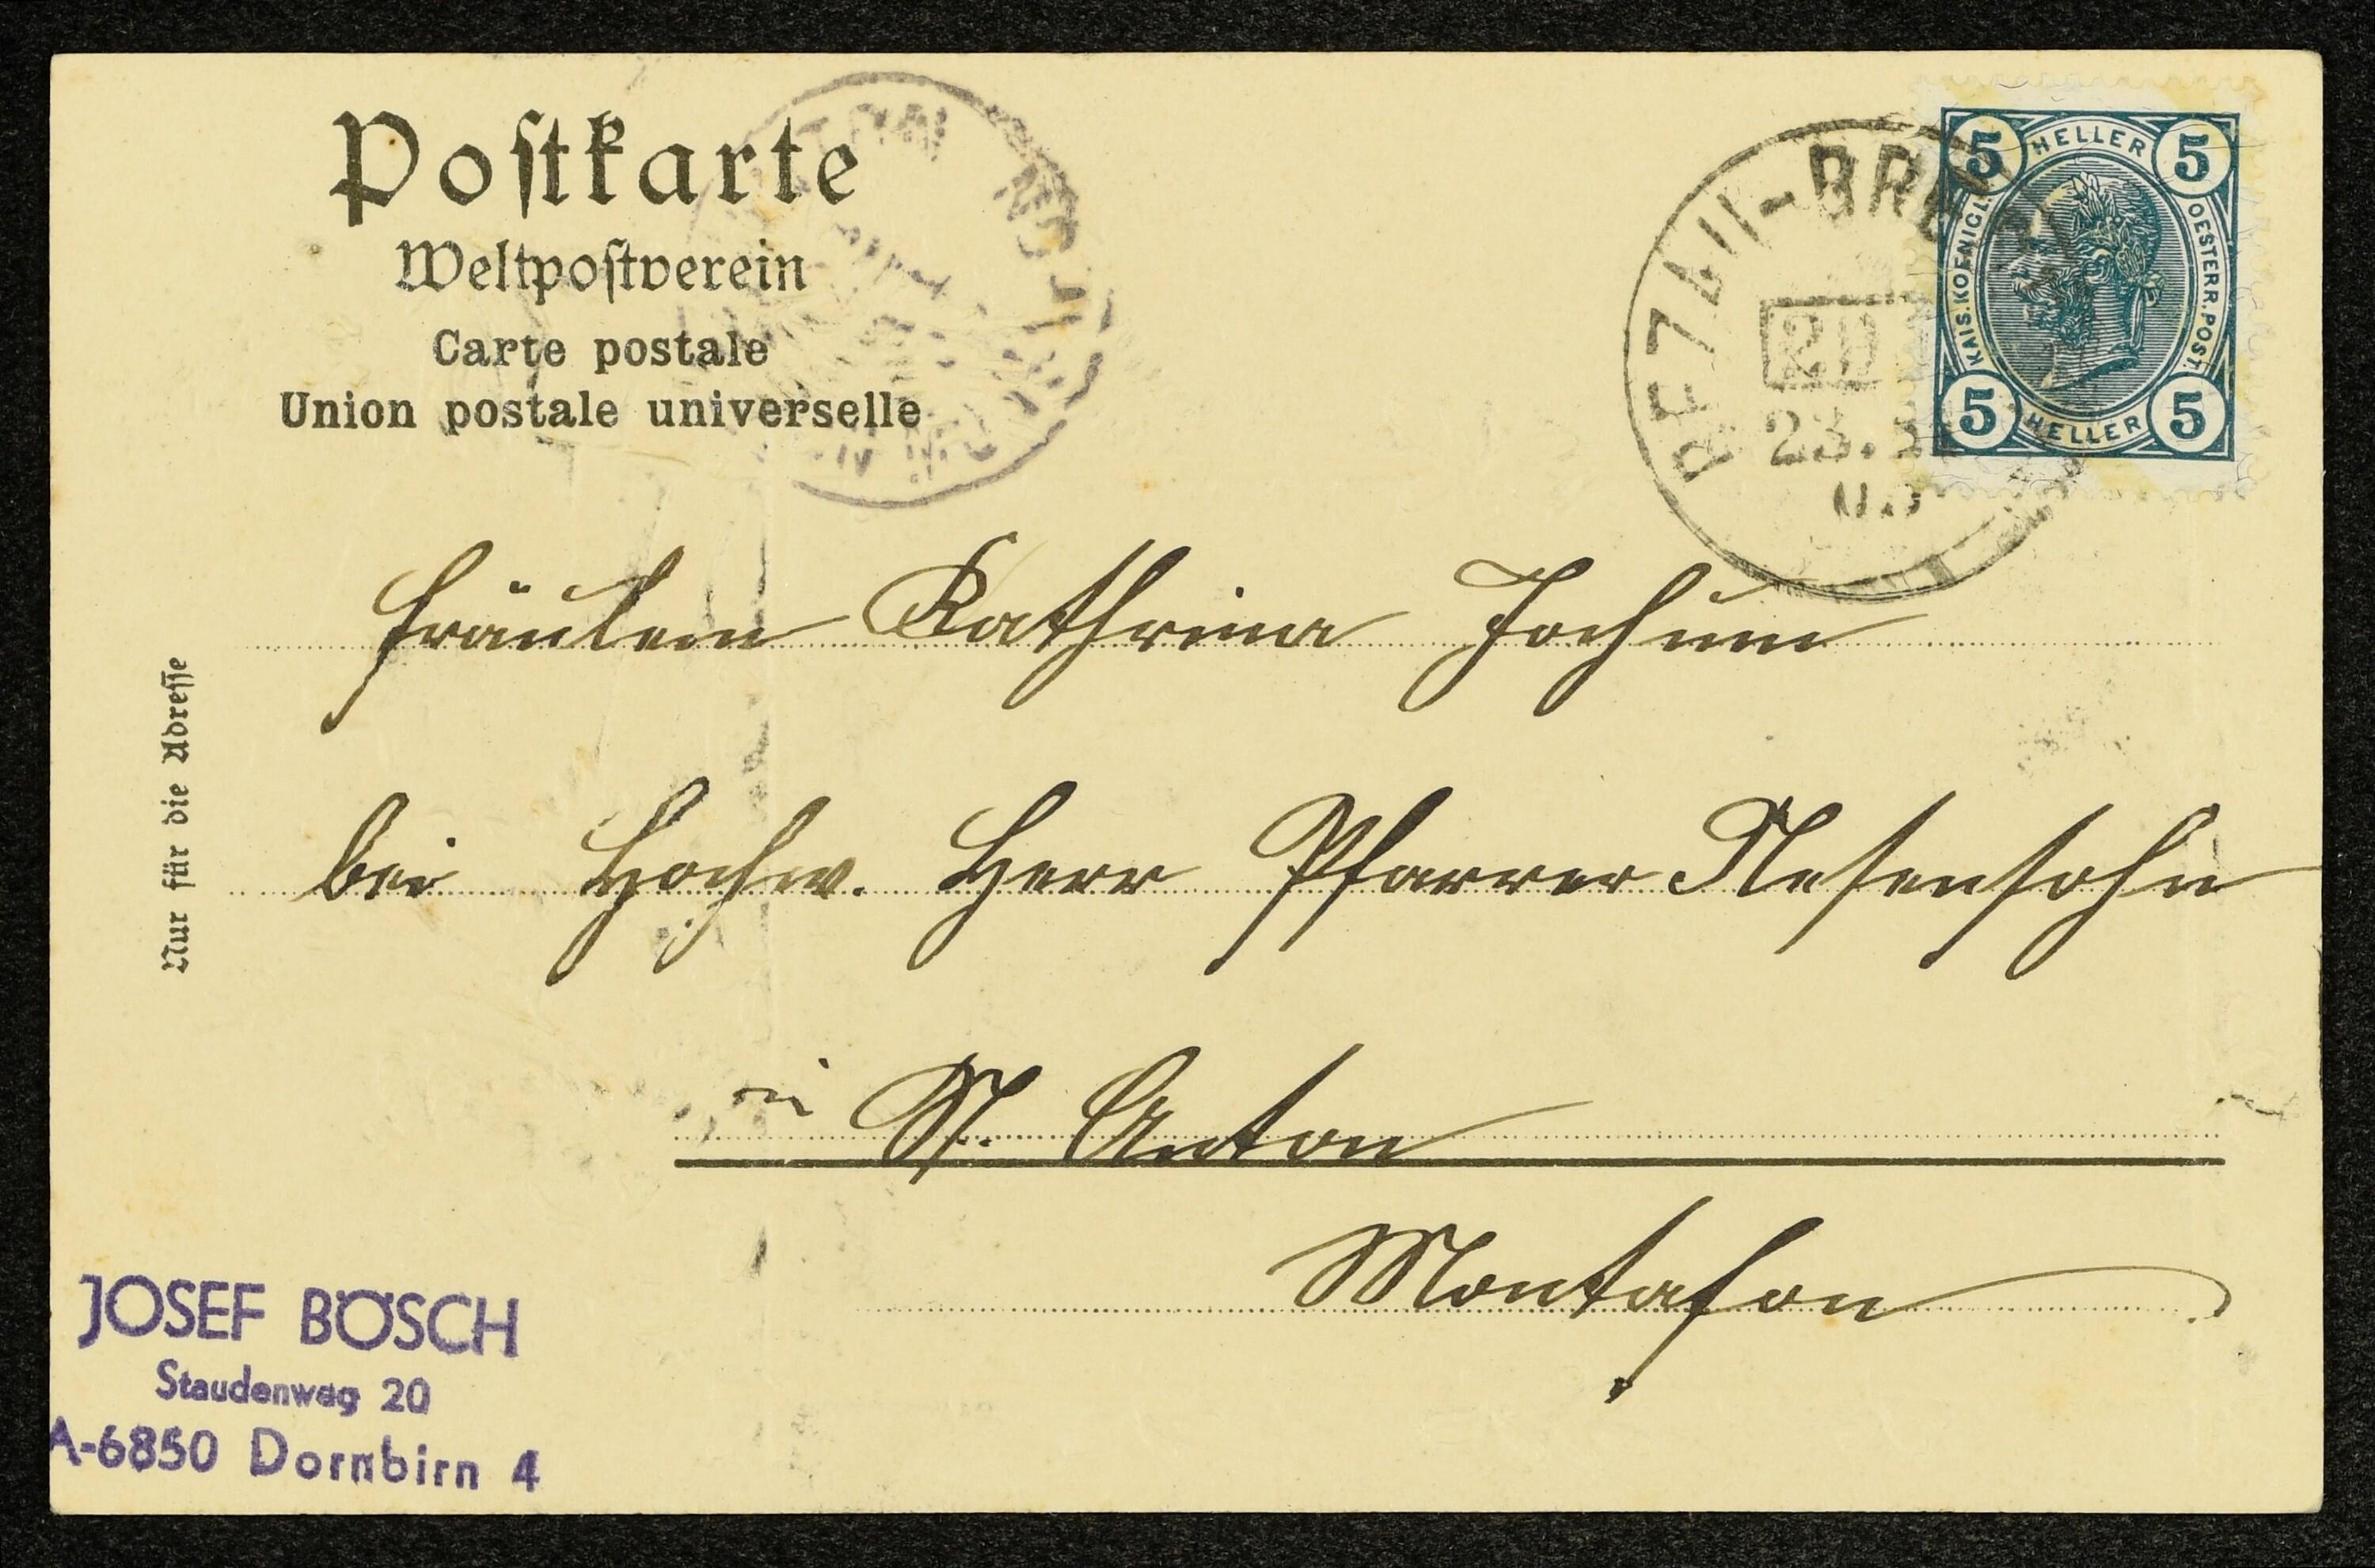 Postkarte
Weltpostverein
Carte postale
Union postale universelle
BEZAU-BREG
20
23.
5 HELLER 5
KAIS. KOENIGL. OESTERR. POST.
5 HELLER 5
Fräulein Kathrina Jochum
bei Hochw. Herr Pfarrer Nesensohn
in St. Anton
Montafon
Nur für die Adresse
JOSEF BÖSCH
Staudenweg 20
A-6850 Dornbirn 4